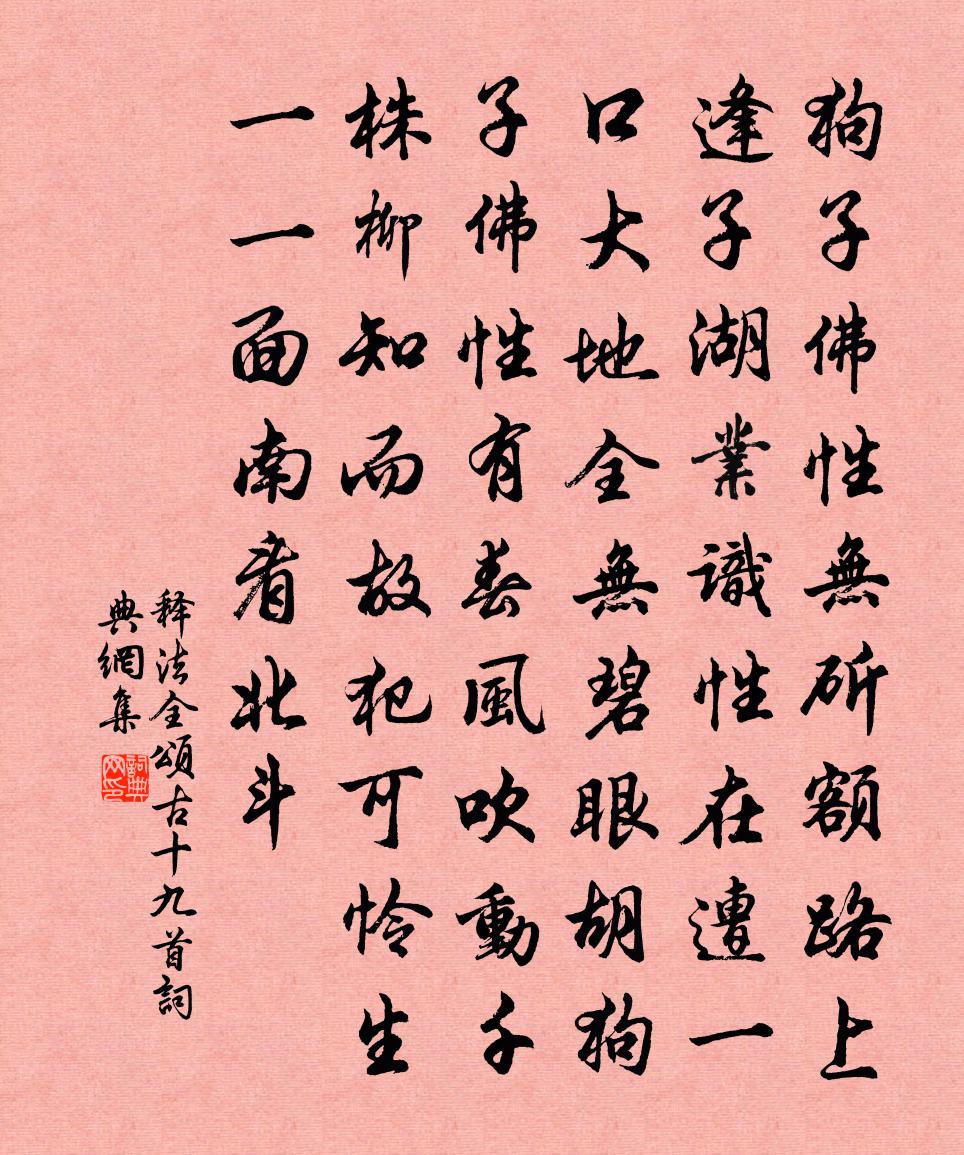 狗子佛性無斫額路上
逢子湖業識性在遭一
口大地全無碧眼胡狗
子佛性有春風吹動千
株柳知而故犯可怜生
一一面南看北斗
释法全頌古十九首詞
典網集
詞典網印